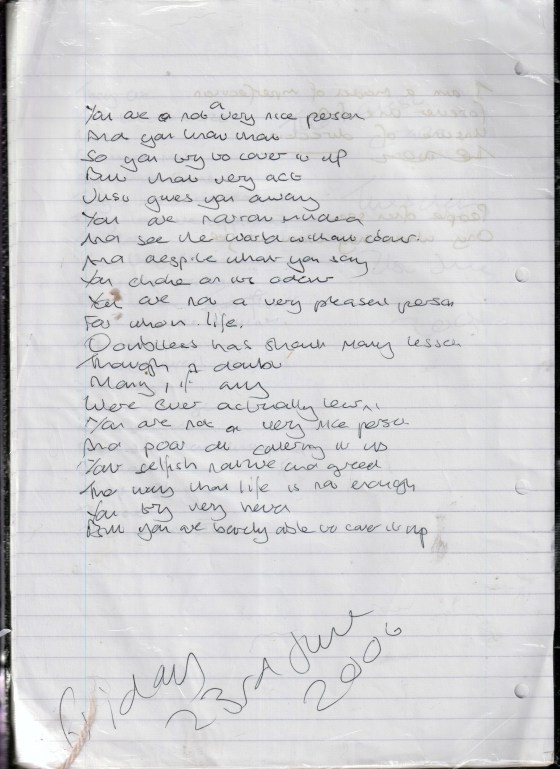 You are a not a very nice person
And you know that
So you try to cover it up
But that very act
Just gives you away
You are narrow minded
And see the world without colour.
And despite what you say
You choke on its odour
You are not a very pleasent person
For whom life,
Doubtless has many lesson
Though I doubt
Many, if any
Were ever actually learnt
You are not a very nice person
And poor at covering it up
Your selfish nature and greed
The way that life is not enough
You try very
But you are barely able to cover it up
Friday
23rd June
2006